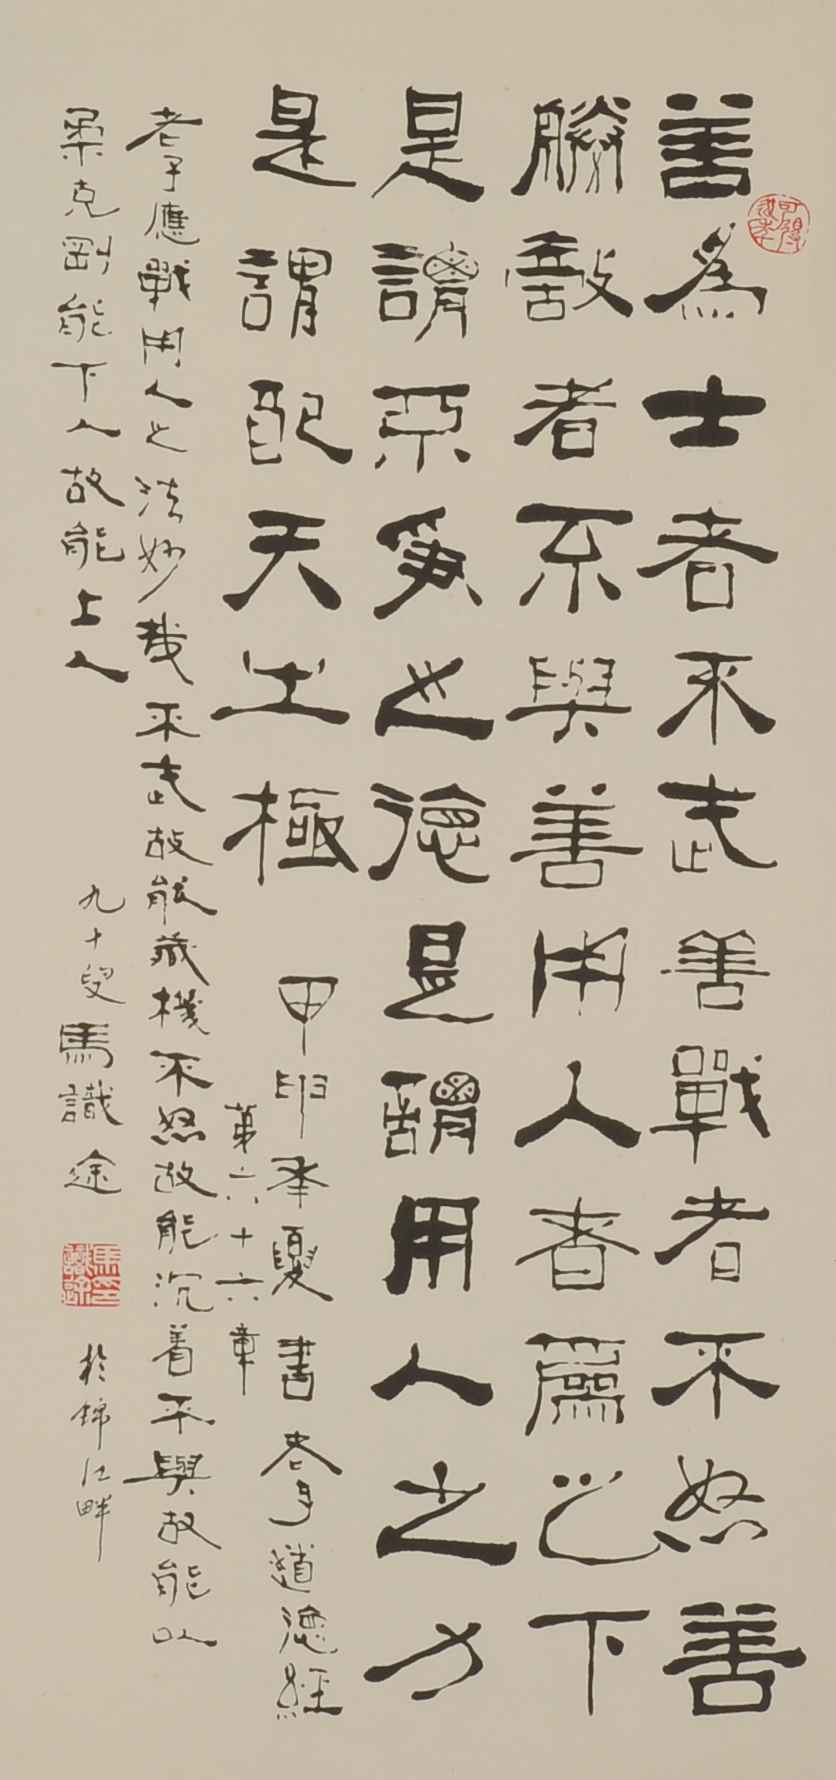 善為士者不武善戰者不怒善
勝敵者不與善用人者為之下
是謂不爭之德是謂用人之力
是謂配天之極 甲申年夏書老子道德經
第六十六章
老子應戰用人之法妙哉不武故能藏機不怒故能沉着不與故能以
柔克剛能下人故能上人 九十叟馬識途 於錦江畔
馬識途印